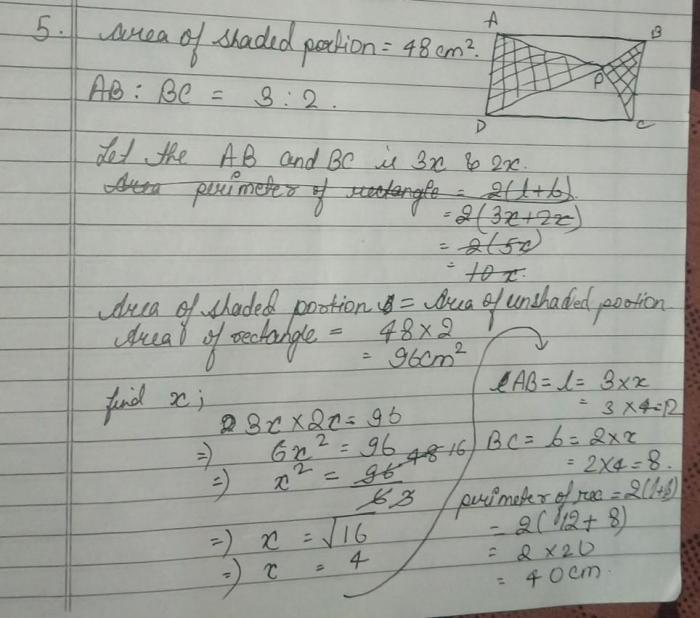 5. Area of shaded portion = 48 cm².
A
B
P
D
C
AB : BC = 3 : 2.
Let the AB and BC is 3x & 2x.
Area perimeter of rectangle = 2(l+b)
= 2(3x+2x)
= 2(5x)
= 10x.
Area of shaded portion = Area of unshaded portion
Area of rectangle = 48 x 2
= 96cm²
find x;
3x x 2x = 96
=) 6x² = 96
=) x² = 96 48 16
6 3
=) x = √16
=) x = 4
AB = l = 3 x x
= 3 x 4 = 12
BC = b = 2 x x
= 2 x 4 = 8.
perimeter of rec = 2(l+b)
= 2(12 + 8)
= 2 x 20
= 40cm.